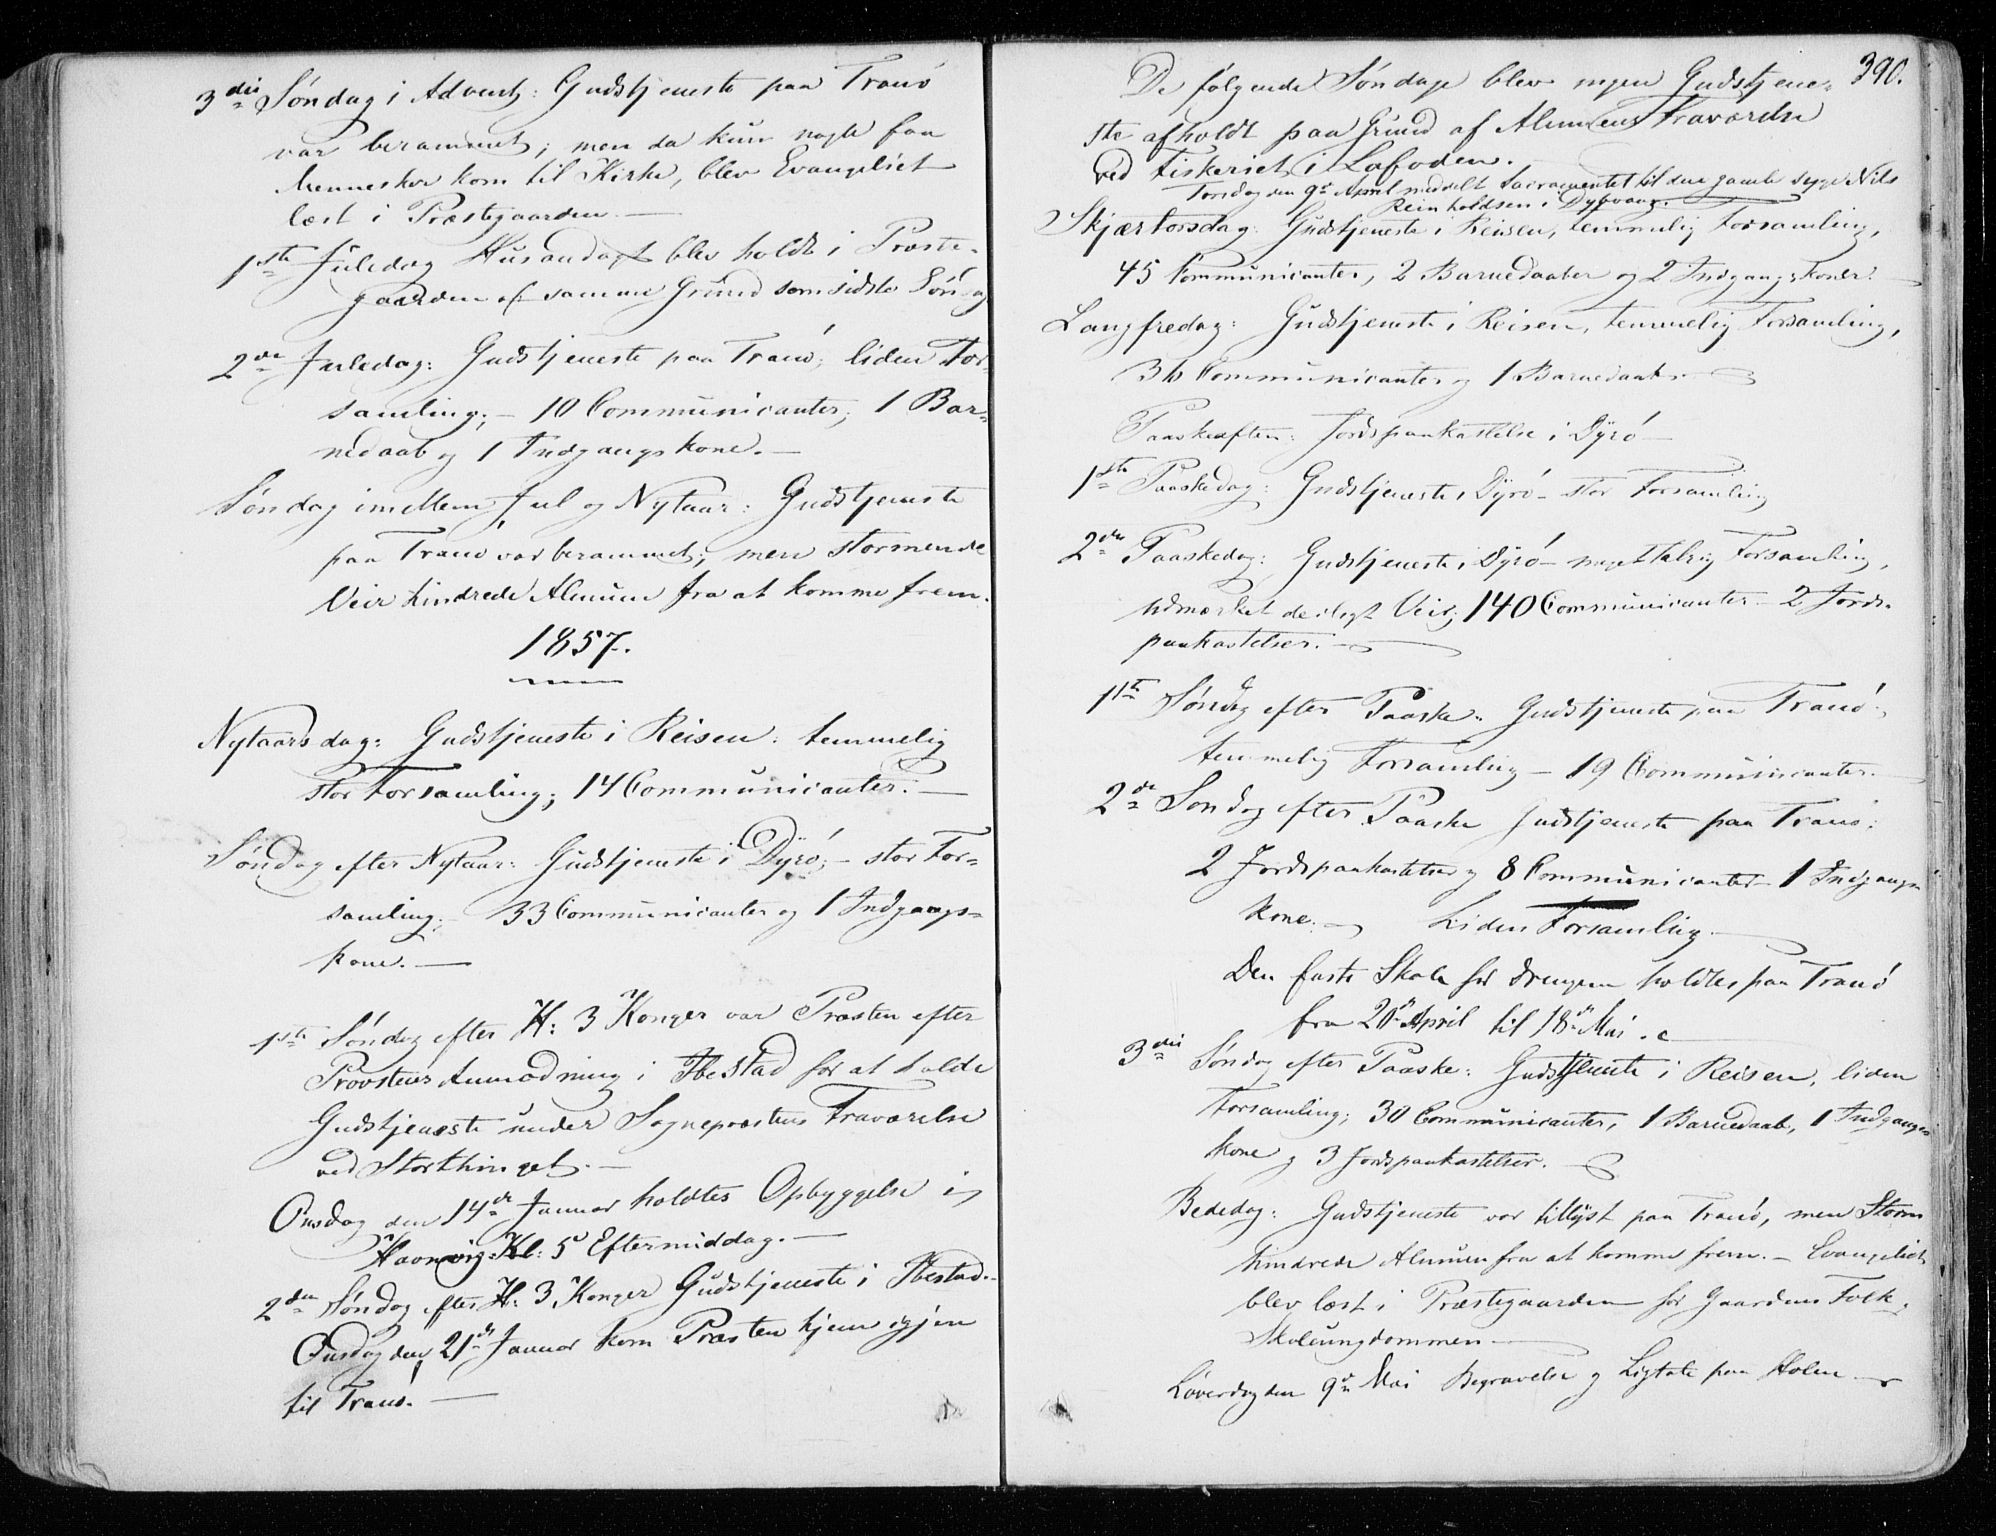 3die Søndag i Advent: Gudstjeneste paa Tranø
var berammet; men da kun nogle faa
Mennesker kom til Kirke, blev Evangeliet
læst i Præstegaarden. —
1ste Juledag Husandagt blev holdt i Præste-
gaarden af samme Grund som sidste Søndag
2den Juledag: Gudstjeneste paa Tranø; liden For-
samling; — 10 Communicanter; 1 Bar-
nedaab og 1 Indgangskone. —
Søndag imellem Jul og Nytaar: Gudstjeneste
paa Tranø var berammet; men stormende
Veir hindrede Almuen fra at komme frem.
1857.
Nytaarsdag: Gudstjeneste i Reisen: temmelig
stor Forsamling; 14 Communicanter. —
Søndag efter Nytaar: Gudstjeneste i Dyrø; — stor For-
samling; 33 Communicanter og 1 Indgangs-
kone. —
1ste Søndag efter H: 3 Konger var Præsten efter
Provstens Anmodning i Ibestad for at holde
Gudstjeneste under Sognepræstens Fraværelse
ved Storthinget. —
Onsdag den 14de Januar holdtes Opbyggelse i
Havnvig Kl: 5 Eftermiddag. —
2den Søndag efter H: 3 Konger Gudstjeneste i Ibestad.
Onsdag den 21de Januar kom Præsten hjem igjen
til Tranø. —
390.
De følgende Søndage blev ingen Gudstjene-
ste afholdt paa Grund af Almuens Fraværelse
ved Fiskeriet i Lofoden.
Torsdag den 9de April meddelt Sacramentet til den gamle syge Nils
Reinholdsen i Dyrvaag.
Skjærtorsdag: Gudstjeneste i Reisen, temmelig Forsamling,
45 Communicanter, 2 Barnedaaber og 2 Indgangskoner.
Langfredag: Gudstjeneste i Reisen, temmelig Forsamling,
36 Communicanter og 1 Barnedaab. —
Paaskeaften: Jordspaakastelse i Dyrø —
1ste Paaskedag: Gudstjeneste i Dyrø — stor Forsamling
2den Paaskedag: Gudstjeneste i Dyrø — meget talrig Forsamling,
udmærket deiligt Veir; 140 Communicanter — 2 Jords-
paakastelser. —
1ste Søndag efter Paaske: Gudstjeneste paa Tranø;
temmelig Forsamling — 19 Communicanter. —
2den Søndag efter Paaske Gudstjeneste paa Tranø:
2 Jordspaakastelser og 8 Communicanter — 1 Indgangs
kone. — Liden Forsamling —
Den faste Skole for Drengene holdtes paa Tranø
fra 20de April til 18de Mai.
3die Søndag efter Paaske: Gudstjeneste i Reisen, liden
Forsamling; 30 Communicanter, 1 Barnedaab, 1 Indgangs
kone og 3 Jordspaakastelser. —
Bededag: Gudstjeneste var tillyst paa Tranø, men Storm
hindrede Almuen fra at komme frem. — Evangeliet
blev læst i Præstegaarden for Gaardens Folk,
Skoleungdommen —
Løverdag den 9de Mai Begravelse og Ligtale paa Holm —